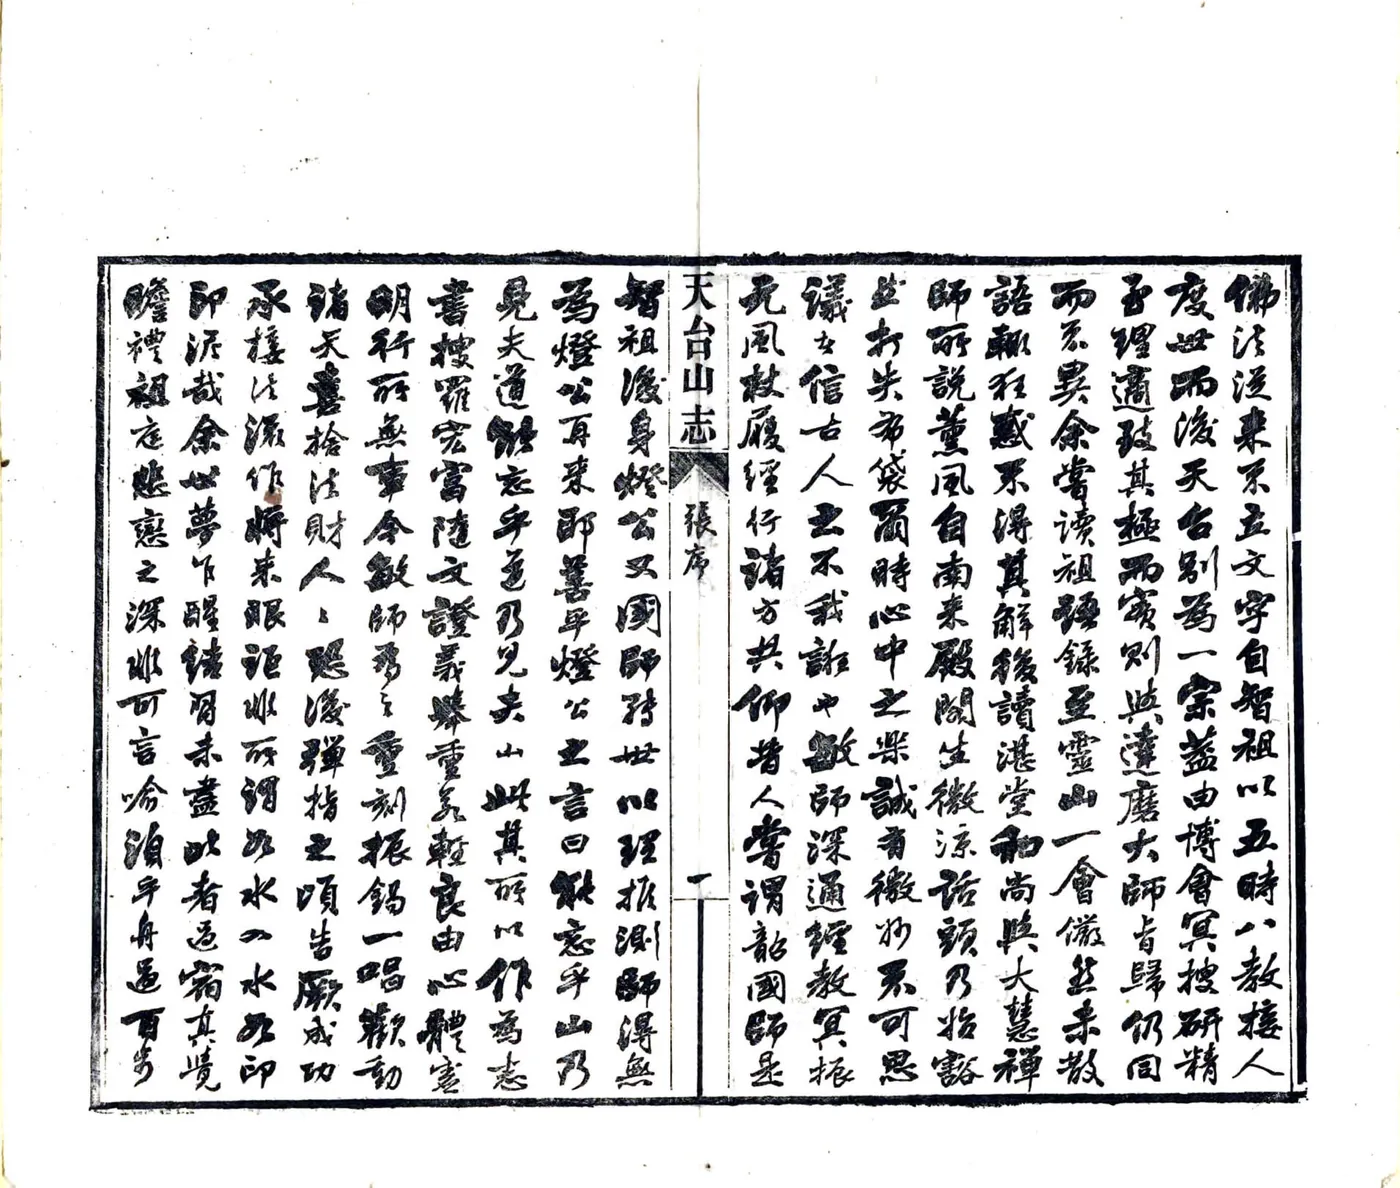 佛法從來不立文字自智祖以五時八教接人
度世而後天台別為一宗葢由博會冥搜研精
至理適玅其極而實則與達磨大師旨歸仍同
而不異余嘗讀祖語錄至靈山一會儼然未散
語輒狂惑不得其解後讀湛堂和尚與大慧禪
師所說薰風自南來殿閣生微涼話頭乃始豁
然打失布袋爾時心中之樂誠有微妙不可思
議者信古人之不我誑也敏師深通經教冥振
元風杖履經行諸方共仰昔人嘗謂韶國師是
天台山志
張序
一
智祖後身燈公又國師轉世以理推測師得無
為燈公再來耶善乎燈公之言曰能忘乎山乃
見夫道能忘乎道乃見夫山此其所以作為志
書搜羅宏富隨文證義舉重若輕良由心體虛
明行所無事今敏師為之重刻振錫一唱歡動
諸天喜捨法財人〻恐後彈指之頃告厥成功
承接法派作將來眼詎非所謂如水入水如印
印泥哉余世夢乍醒諸習未盡此者過宿真覺
瞻禮祖庭悲戀之深非可言喻洎乎舟過百步